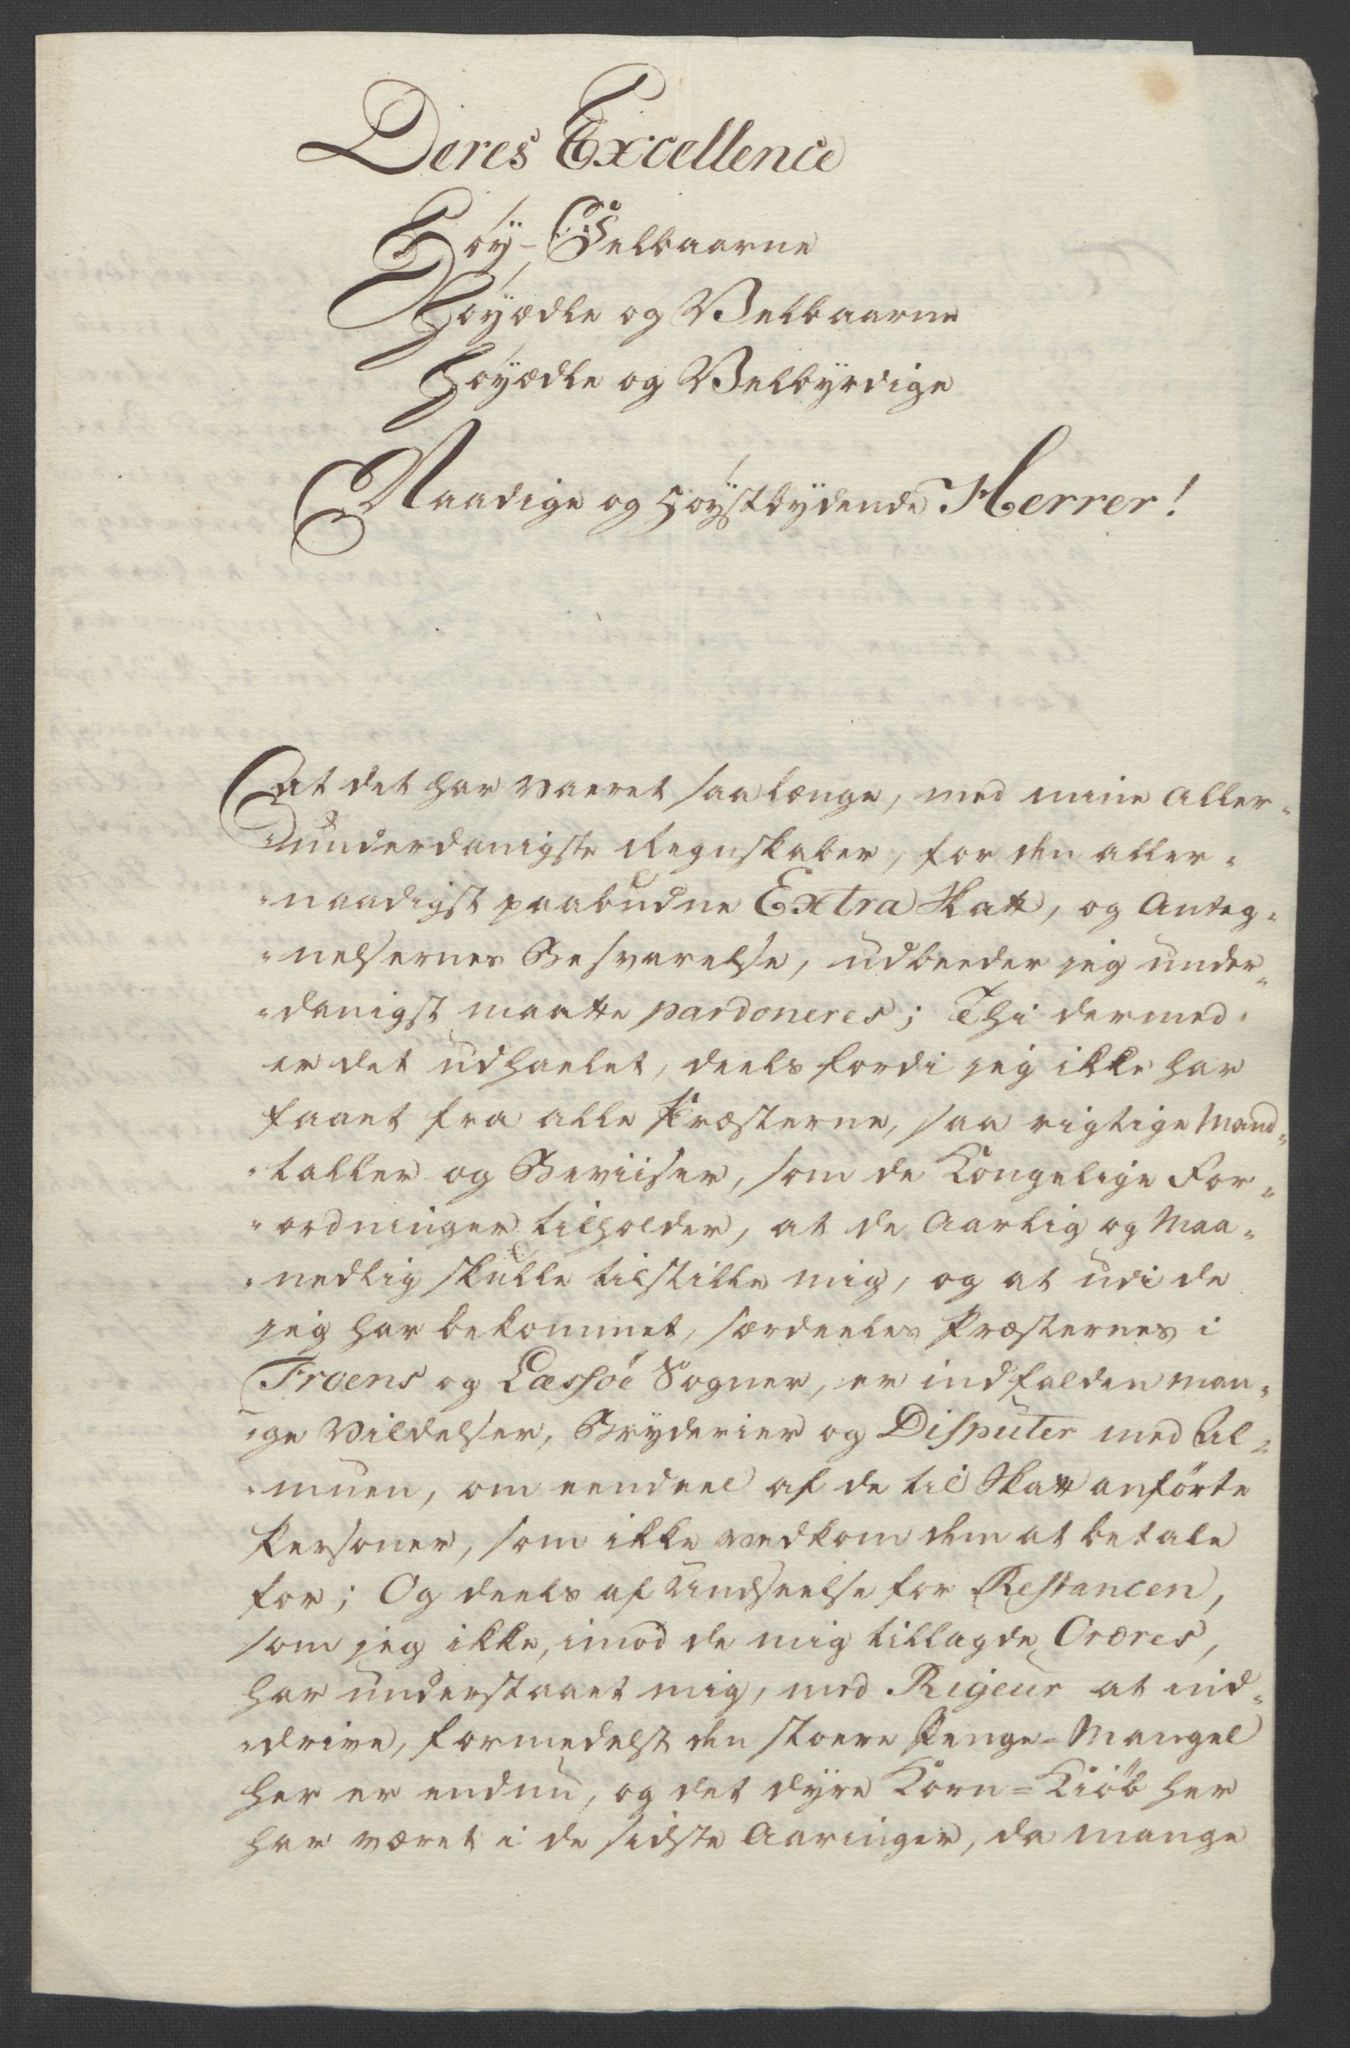 Deres Excellence
Höy-Velbaarne
Höyædle og Velbaarne
Höyædle og Velbyrdige
Naadige og Höystbydende Herrer!
at det har været saa længe, med mine Aller-
underdanigste Regnskaber, for den aller-
naadigst paabudne Extra Skatt, og Anteg-
nelsernes Besvarelse, udbeeder jeg under-
danigst maatte pardoneres; Thi dermed
er det udhaelet, deels fordi jeg ikke har
faaet fra alle Præsterne, saa rigtige Mand-
taller og Beviiser, som de Kongelige For-
ordninger tilholder, at de Aarlig og Maa-
nedlig skulle tilstille mig, og at udi de
jeg har bekommet, særdeeles Præsternes i
Froens og Læssöe Sogner, er indfalden man-
ge Vildelser, Bryderier og Disputer med Al-
muen, om eendeel af de til Skatt anförte
Personer, som ikke vedkom dem at betale
for; Og deels af Undseelse for Restancen,
som jeg ikke, imod de mig tillagde Ordres,
har understaaet mig, med Rigeur at ind-
drive, formedelst den stoere Penge-Mangel
her er endnu, og det dyre Korn=Kiöb her
har været i de sidste Aaringer, da mange